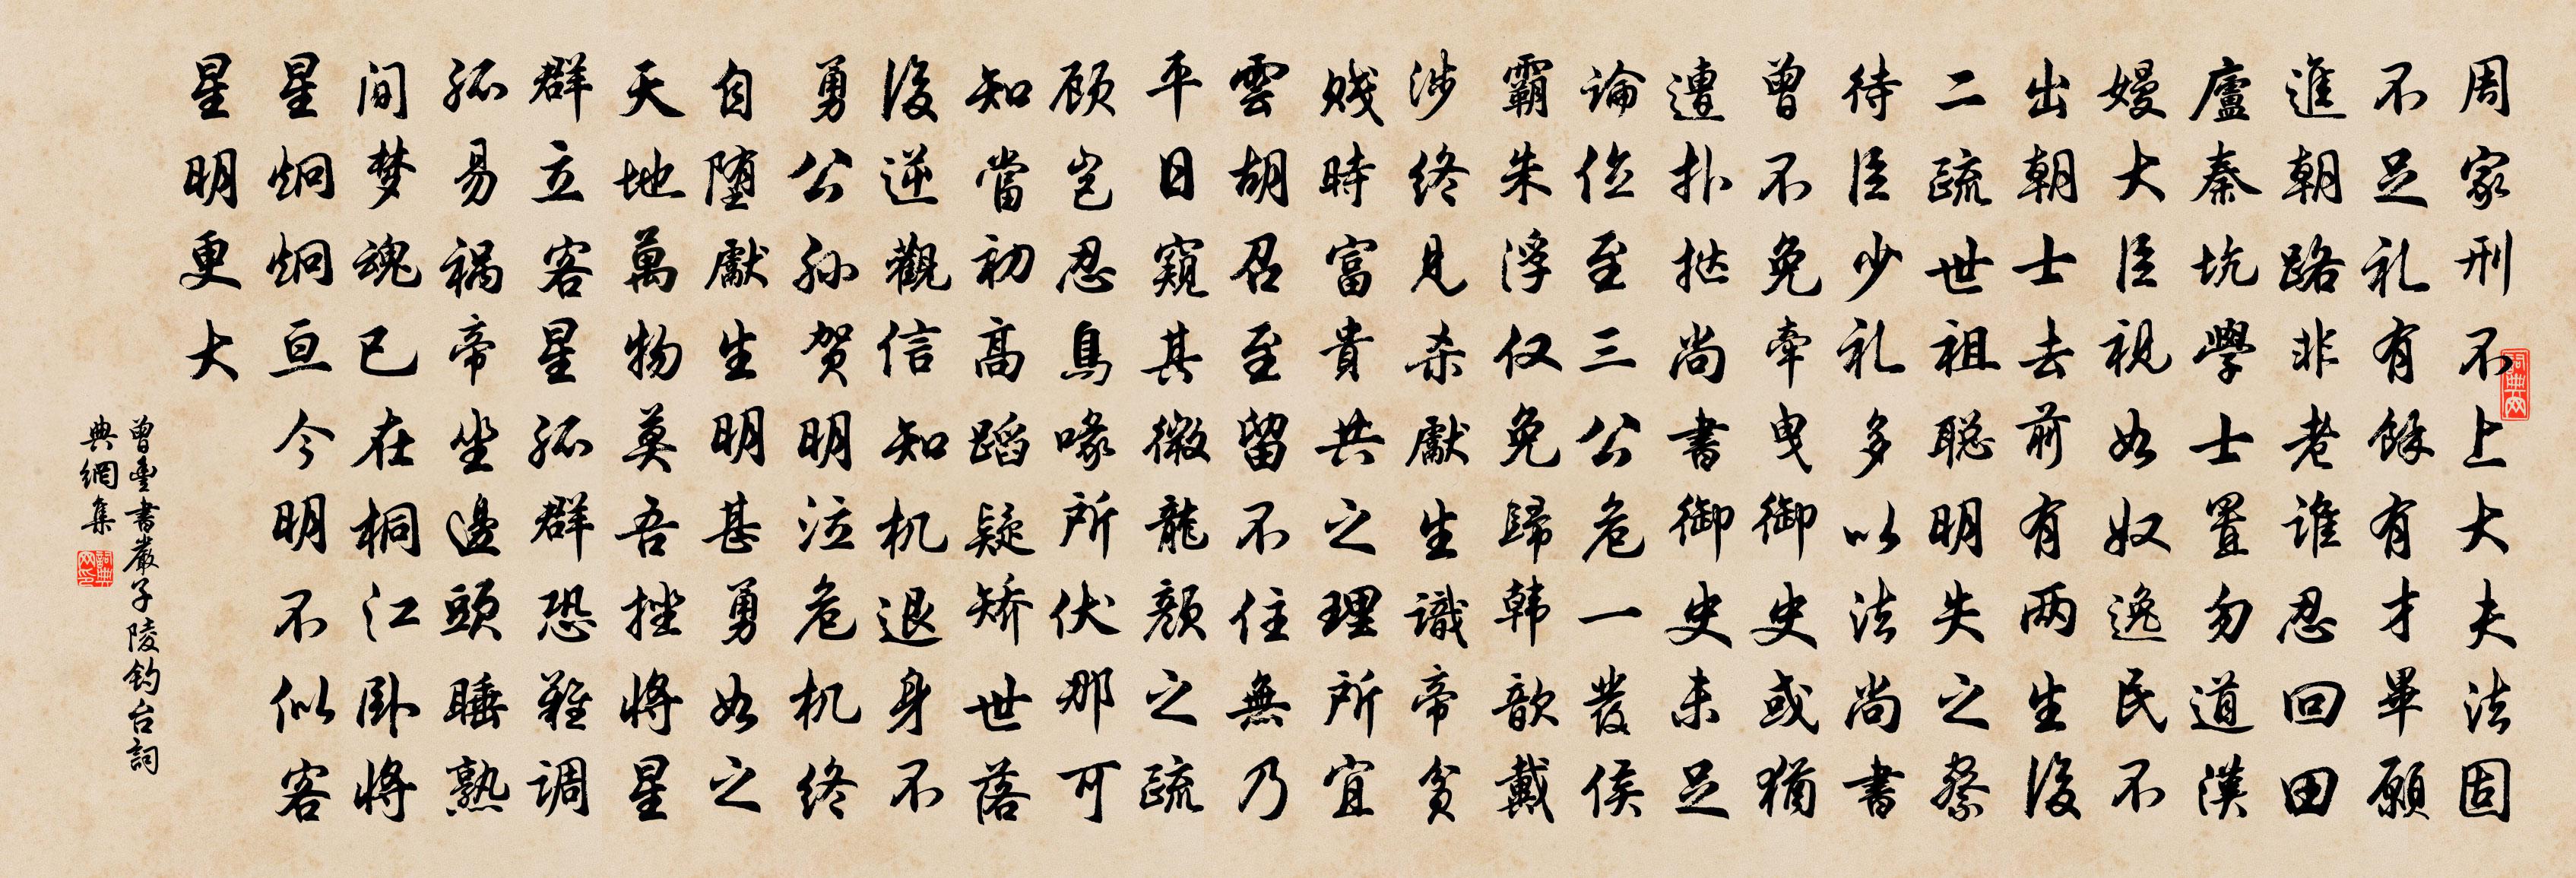 周家刑不上大夫法固
不足礼有餘有才畢願
進朝路非老谁忍回田
廬秦坑學士置勿道漢
嫚大臣視如奴逸民不
出朝士去前有两生後
二疏世祖聪明失之察
待臣少礼多以法尚書
曾不免牵曳御史或猶
遭扑挞尚書御史未足
论位至三公危一發侯
霸朱浮仅免歸韩歆戴
涉终見杀獻生識帝贫
贱時富貴共之理所宜
雲胡召至留不住無乃
平日窺其微龍颜之疏
顾岂忍鳥喙所伏那可
知當初高蹈疑矫世落
後逆觀信知机退身不
勇公孙贺明泣危机终
自堕獻生明甚勇如之
天地萬物莫吾挫将星
群立客星孤群恐难调
孤易祸帝坐邊頭睡熟
间梦魂已在桐江卧将
星炯炯亘今明不似客
星明更大
曾豐書嚴子陵釣台詞
典網集
詞典网
詞典网印